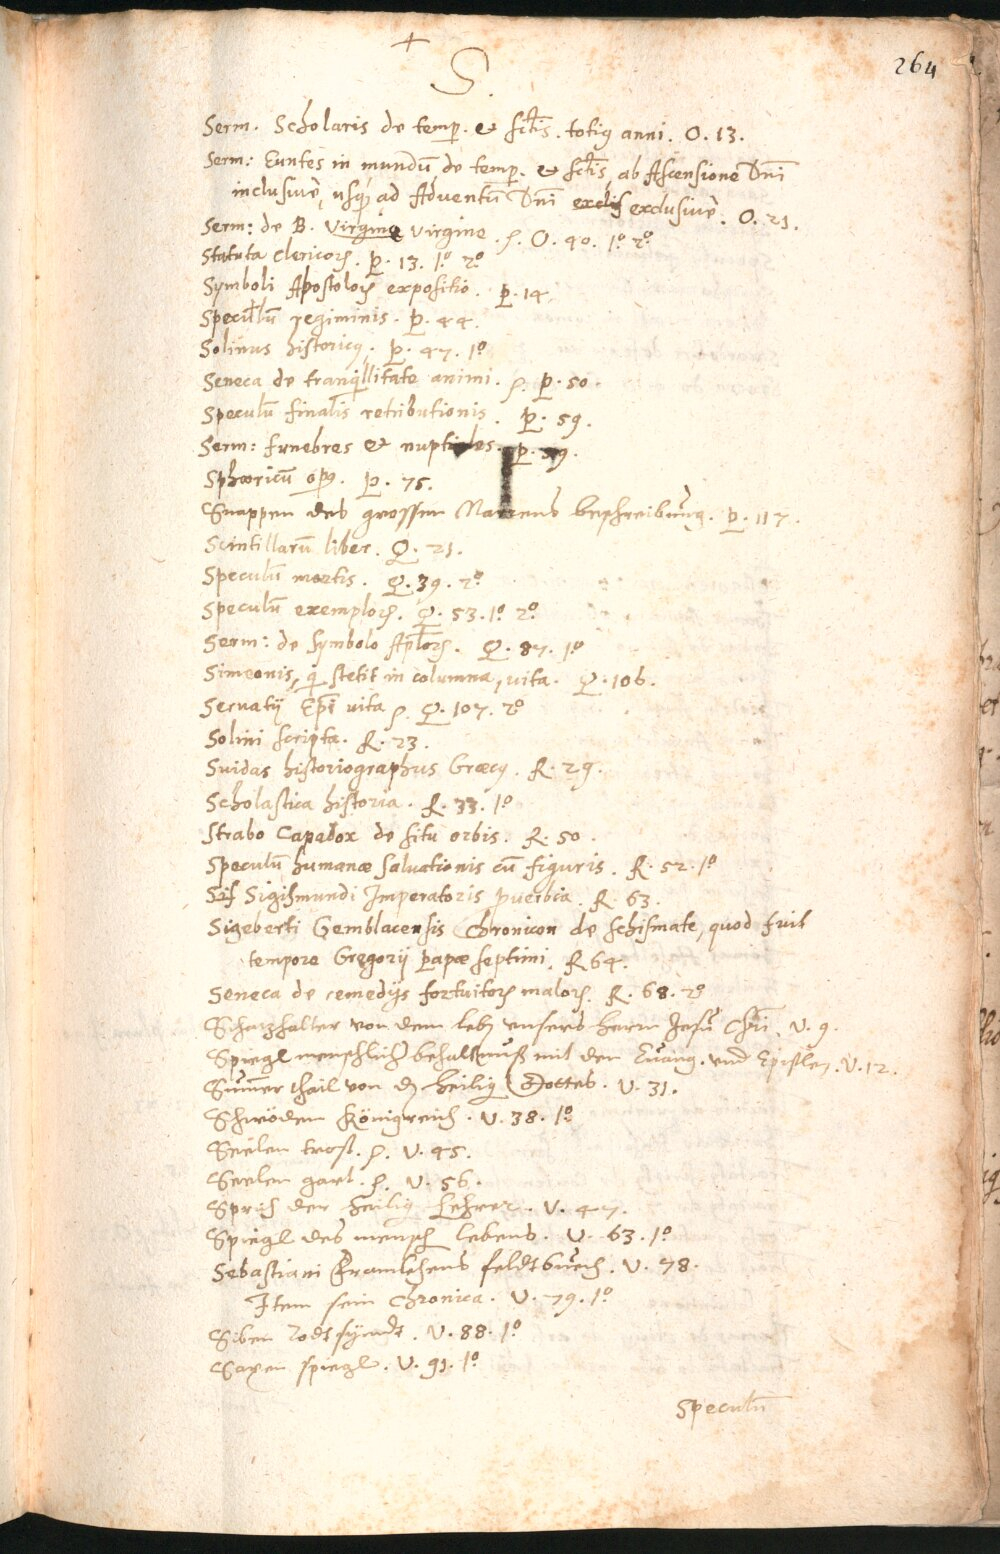 +
264
S.
Serm. Scholaris de temp. et sctis. totiq anni. O. 13.
Serm: Euntes in mundū de temp. et sctis, ab Ascensione Dni
inclusivè, usq ad Adventū Dni exclis exclusivè. O. 21.
Serm: de B. Virgine virgine. S. O. 40. 1º 2º
Statuta clericorꝝ. P. 13. 1º 2º
Symboli Apostolorꝝ expositio. P. 14.
Speculū regiminis. P. 44.
Solinus historicꝰ. P. 47. 1º
Seneca de tranqllitate animi. S. P. 50.
Speculū finalis retributionis. P. 59.
Serm: funebres et nuptiales. P.
Sphæricū opꝰ. P. 75.
Snappen des grossen Narrens beschreibung. P. 117.
Scintillarū liber. Q. 21.
Speculū mortis. Q. 39. 2º
Speculū exemplorꝝ. Q. 53. 1º 2º
Serm: de symbolo Aplorꝝ. Q. 87. 1º
Simeonis, q stetit in columna, vita. Q. 106.
Servatij Epi vita S. Q. 107. 2º
Solini scripta. R. 23.
Suidas historiographus Græcꝰ. R. 29.
Scholastica historia. R. 33. 1º
Strabo Capadox de situ orbis. R. 50.
Speculū humanæ salvationis cū figuris. R. 52. 1º
Sigismundi Imperatoris pverbia. R. 63.
Sigeberti Gemblacensis Chronicon de schismate, quod fuit
tempore Gregorij Papæ septimi. R 64.
Seneca de remedijs fortuitorꝝ malorꝝ. R. 68. 2º
Schatzhalter von dem lebn unsers herrn Jesu Chri. V. 9.
Spiegl menschlicher behaltnuß mit den Evang. und Epistlen. V. 12.
Summer thail von dn heilign Gottes. V. 31.
Schwöden Königreich. V. 38. 1º
Seelen trost. S. V. 45.
Seelen gart. S. V. 56.
Spruch der heilign Lehrer. V. 47.
Spiegl des mensch lebens. V. 63. 1º
Sebastiani Franckhens feldtbuech. V. 78.
Item sein Chronica. V. 79. 1º
Siben Todtsyndt. V. 88. 1º
Saxen spiegl. V. 91. 1º
Speculū